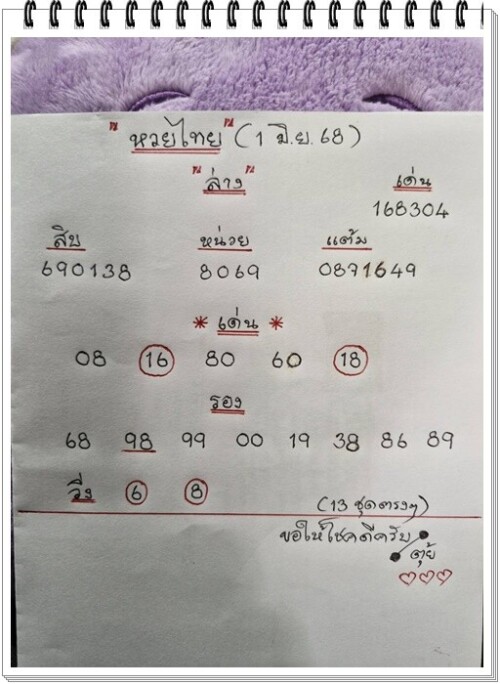 "หวยไทย" (1 มิ.ย. 68)
"ล่าง"
เด่น
168304
สิบ หน่วย แต้ม
690138 8069 0871649
* เด่น *
08 16 80 60 18
รอง
68 98 99 00 19 38 86 89
วิ่ง 6 8
(13 ชุดตรงๆ)
ขอให้โชคดีครับ
ตุ้ย